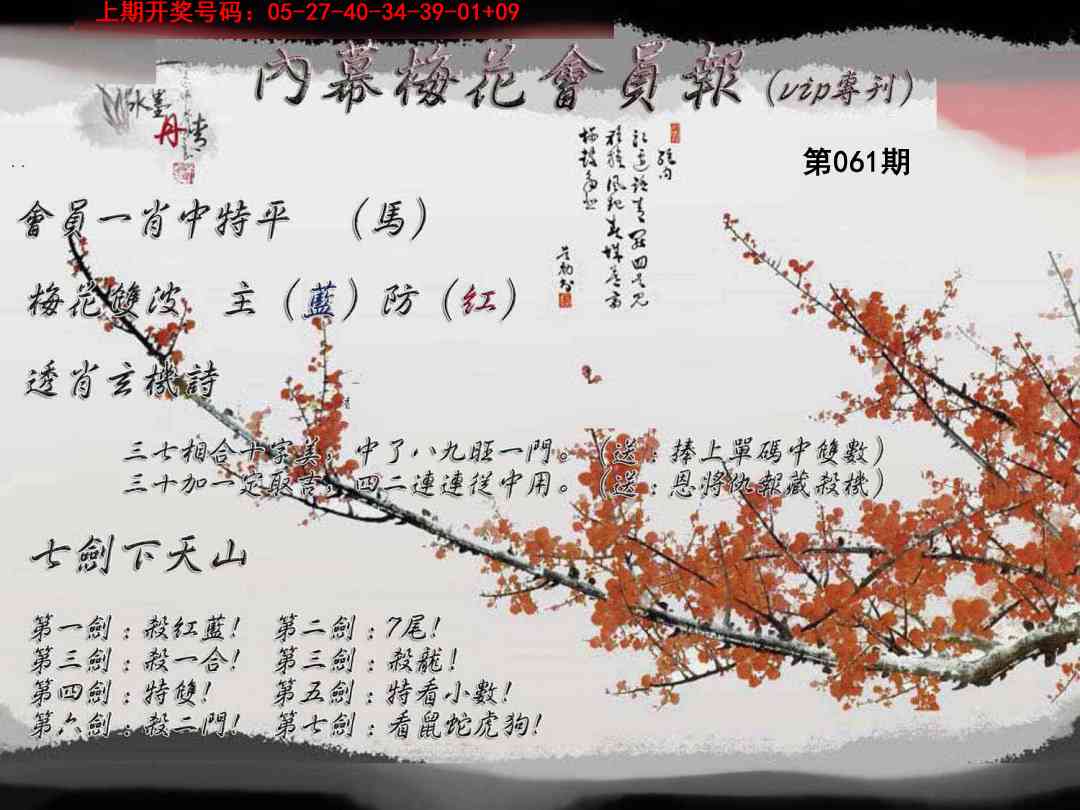 上期开奖号码：05-27-40-34-39-01+09
內幕梅花會員報（vip專刊）
水墨
丹青
第061期
會員一肖中特平　（馬）
梅花雙波　主（藍）防（紅）
透肖玄機詩
三七相合十字美，中了八九旺一門。（送：捧上單碼中雙數）
三十加一定取吉，四二連連從中用。（送：恩將仇報藏殺機）
七劍下天山
第一劍：殺紅藍！　第二劍：7尾！
第三劍：殺一合！　第三劍：殺龍！
第四劍：特雙！　第五劍：特看小數！
第六劍：殺二門！　第七劍：看鼠蛇虎狗！